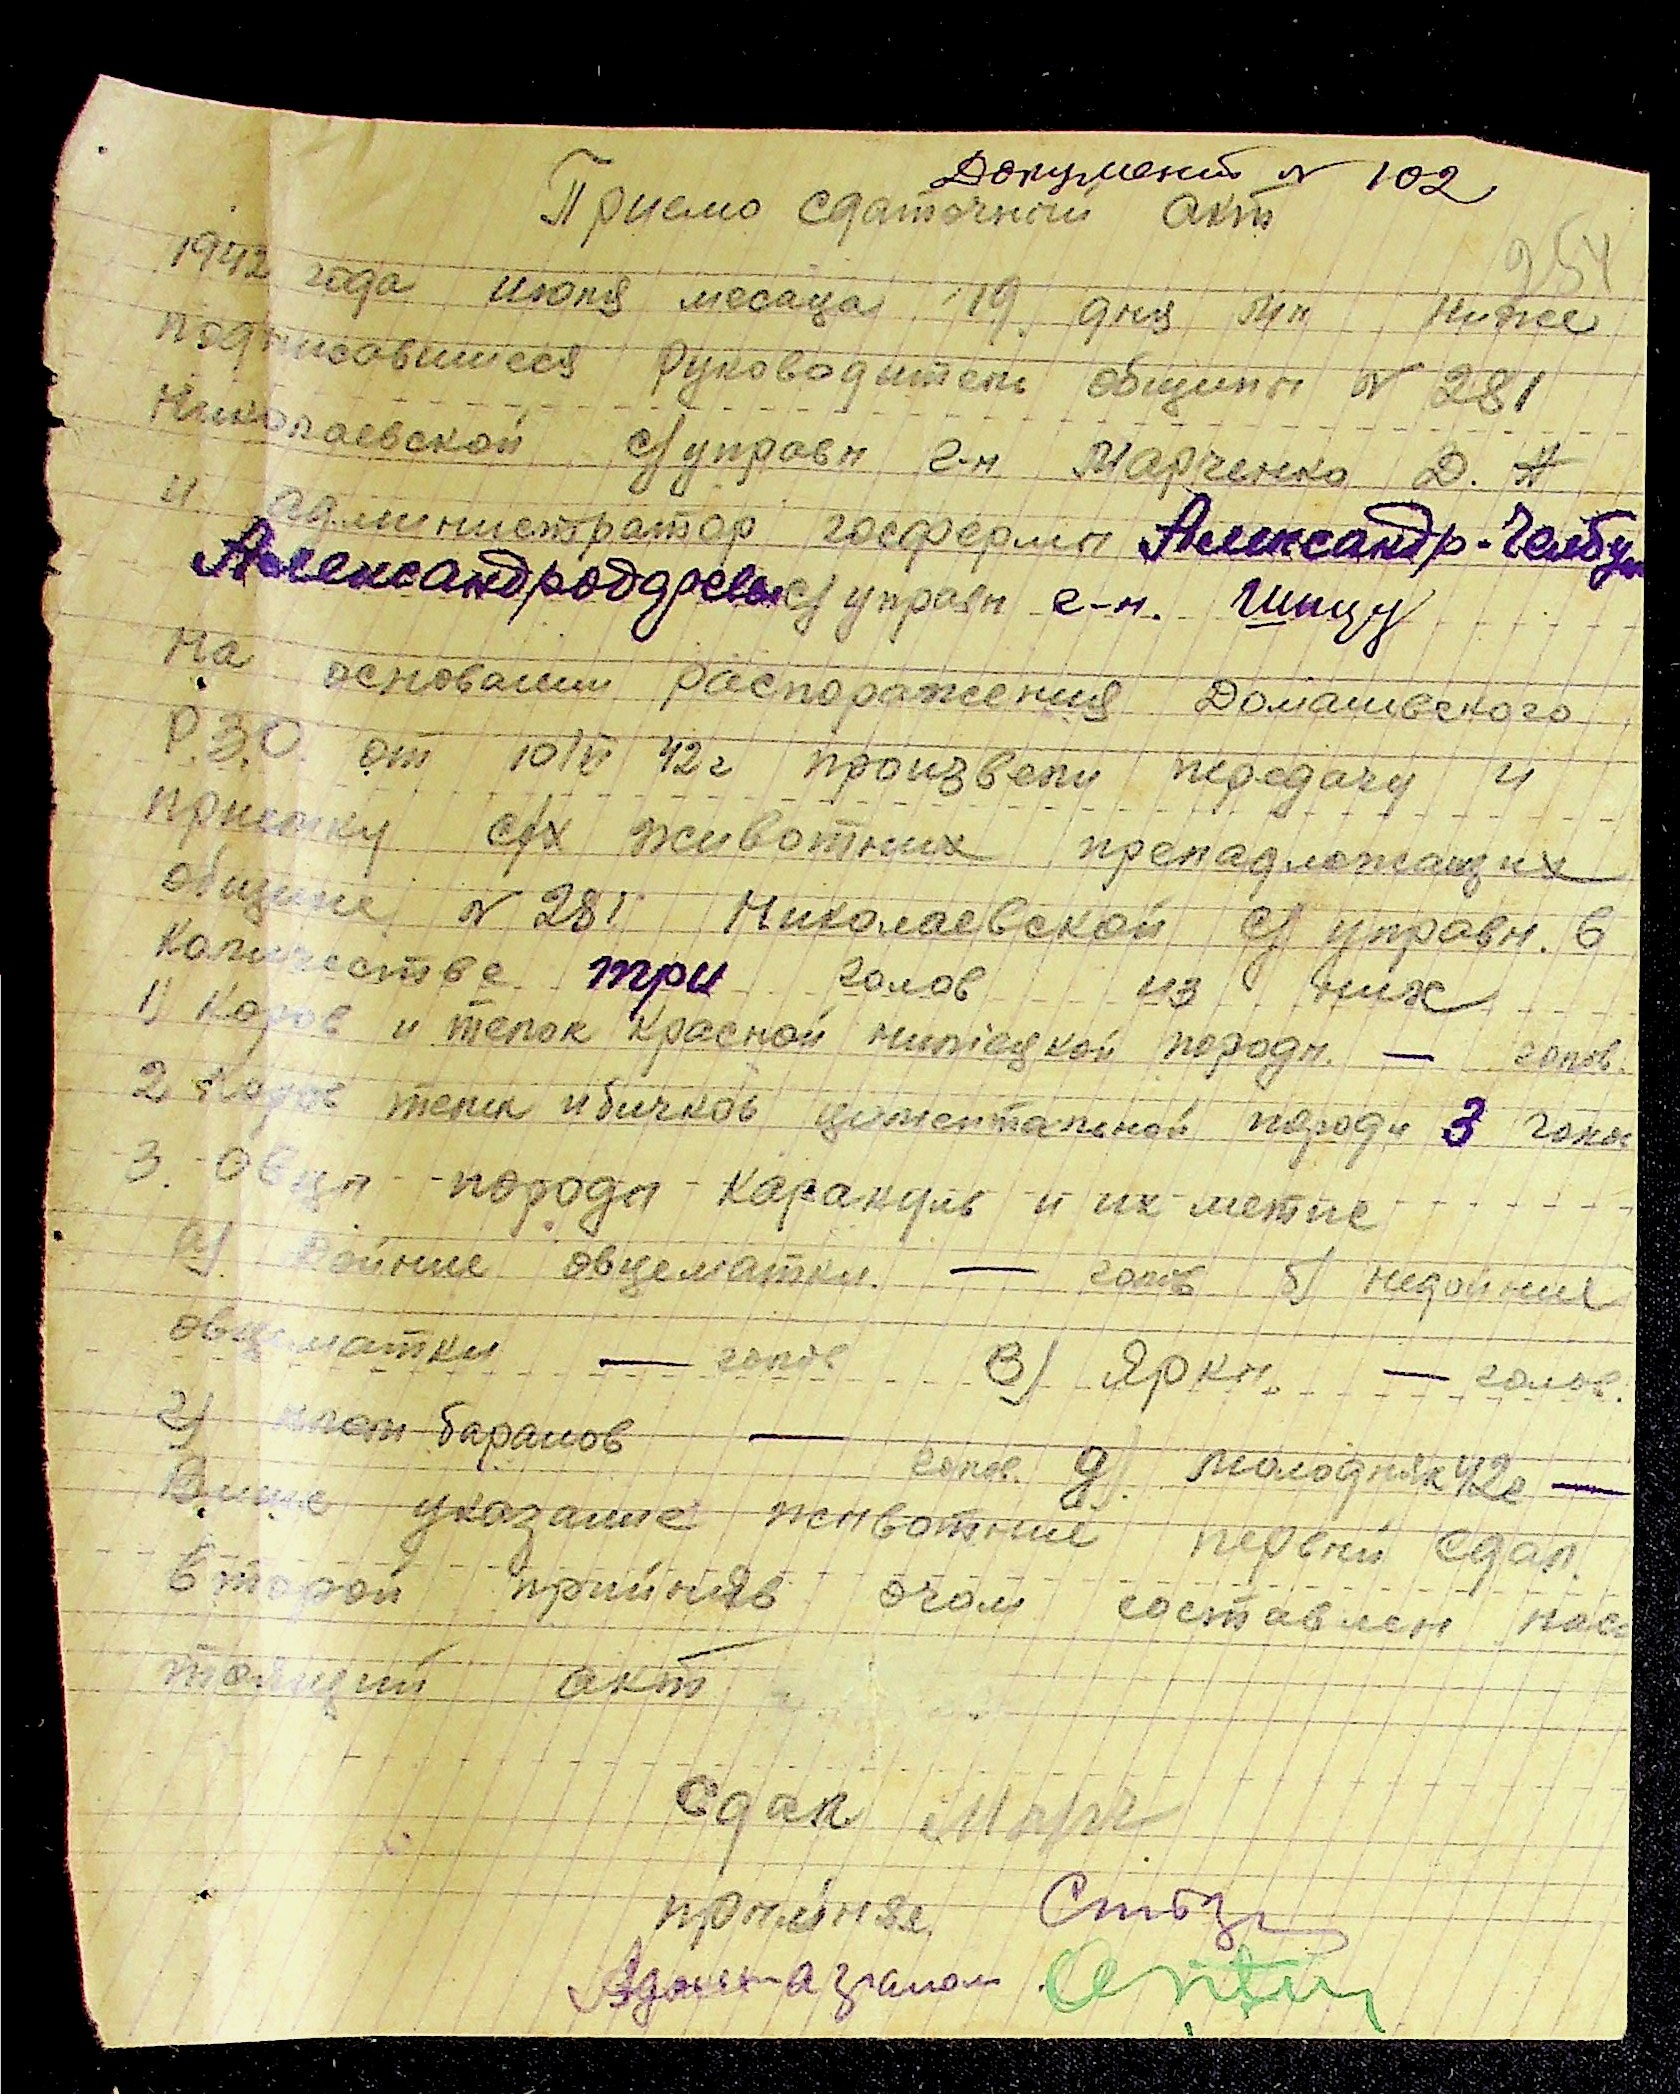 Документ № 102
Приемо сдаточний акт
254
1942 года июля месаца 19 дня Ми ниже
подписавшиеся Руководитель общини № 281
Николаевской с/управи г-н Марченко Д.
и администратор госферми Александр-Челбу
с/управи г-н.
На основании распоражения Домашевского
Р.З.О. от 42г произвели передачу и
приемку с/х животних препадлежащих
общине № 281 Николаевской с/управи. в
количестве три голов из них
1) Коров и телок красной породи. — голов.
2 Коров телек и бичков породи 3 голов
3. Овци породи каракуль и их метис
а) Дойние овцематки. — голов б) недойние
овцематки — голов в) Ярки. — голов.
г) баранов — голов. д). молодняк 42г —
Више указание животние первий сдал.
второй прийняв очом составлен нас
тоящий акт
Сдал Марч
прийняв